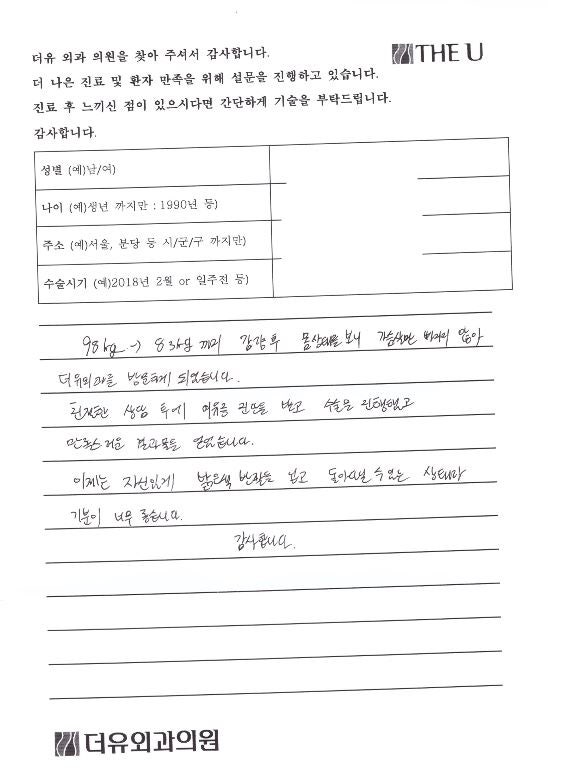 더유 외과 의원을 찾아 주셔서 감사합니다.
THE U
더 나은 진료 및 환자 만족을 위해 설문을 진행하고 있습니다.
진료 후 느끼신 점이 있으시다면 간단하게 기술을 부탁드립니다.
감사합니다.
성별 (예)남/여)
나이 (예)생년 까지만 : 1990년 등)
주소 (예)서울, 분당 등 시/군/구 까지만)
수술시기 (예)2018년 2월 or 일주전 등)
98kg → 83kg 까지 감량후 몸상태를 보니 가슴살만 빠지지 않아
더유외과를 방문하게 되었습니다.
친절한 상담 후에 여유증 진단을 받고 수술을 진행했고
만족스러운 결과물을 얻었습니다.
이제는 자신있게 밝은색 반팔을 입고 돌아다닐 수 있는 상태라
기분이 너무 좋습니다.
감사합니다.
더유외과의원